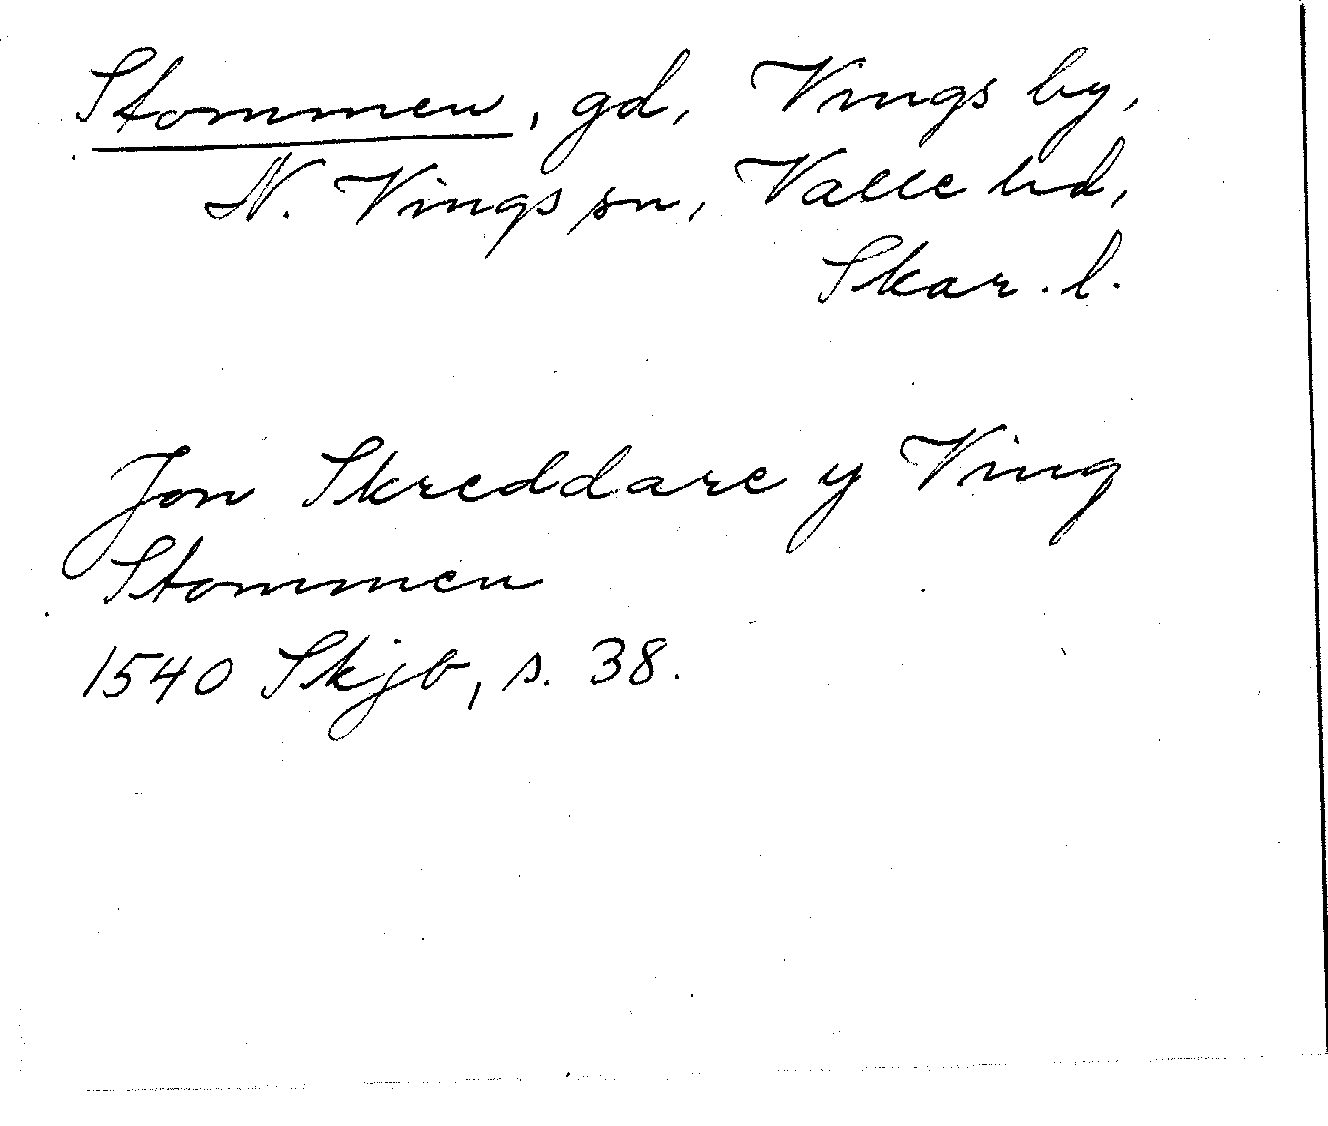 Stommen, gd, Vings by,
N. Vings sn, Valle hd,
Skar. l.
Jon Skreddare y Ving
Stommen
1540 Skjb, s. 38.